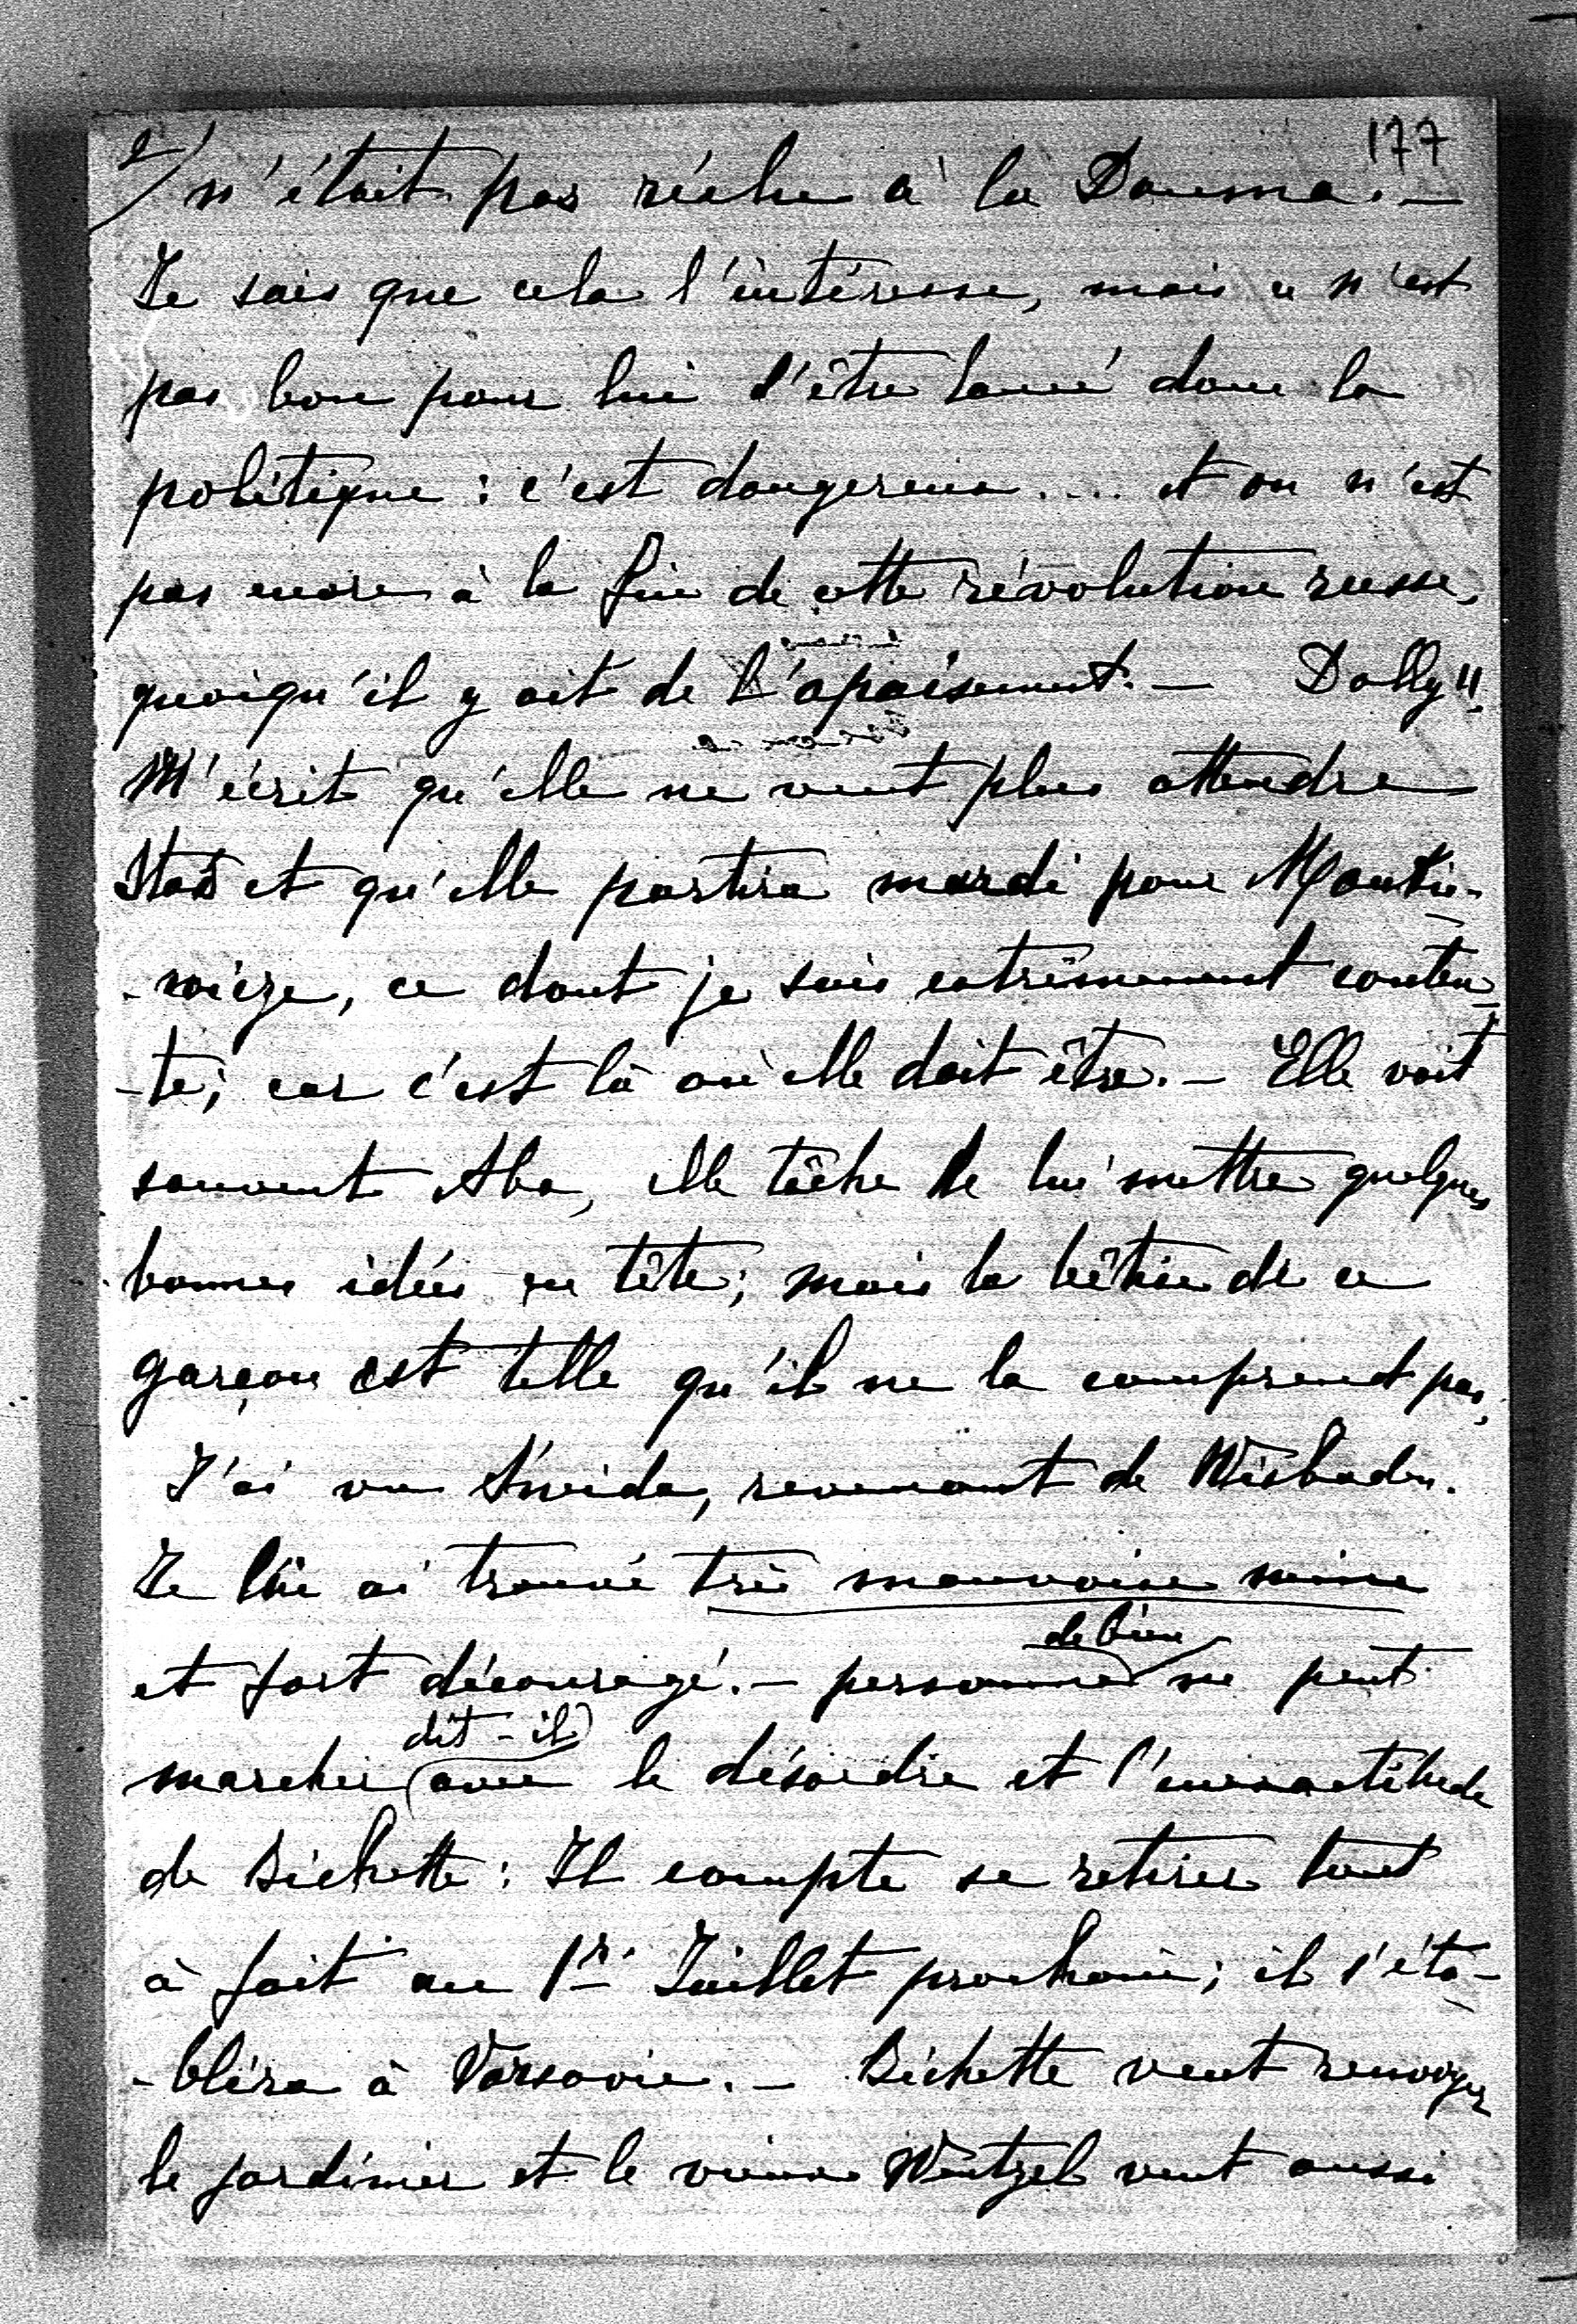 177
2/ n'était pas réélu à la Douma. —
Je sais que cela l'intéresse, mais ce n'est
pas bon pour lui d'être lancé dans la
politique : c'est dangereux .... et on n'est
pas encore à la fin de cette révolution russe,
quoiqu'il y ait de l'apaisement. — Dolly"
M'écrit qu'elle ne veut plus attendre
Stas et qu'elle partira mardi pour
ce dont je suis extrêmement conten-
-te; car c'est là où elle doit être. — Elle voit
souvent Aba, elle tâche de lui mettre quelques
bonnes idées en tête; mais la bêtise de ce
garçon est telle qu'il ne la comprend pas.
J'ai vu revenant de Wisbaden.
Je lui ai trouvé très mauvaise mine
et fort découragé. — personne de bien ne peut
marcher dit-il avec le désordre et l'inexactitude
de Bichette : Il compte se retirer tout
à fait au 1r Juillet prochain; il s'éta-
-blira à Varsovie. — Bichette veut renvoyer
le jardinier et le vieux Wentzel veut aussi